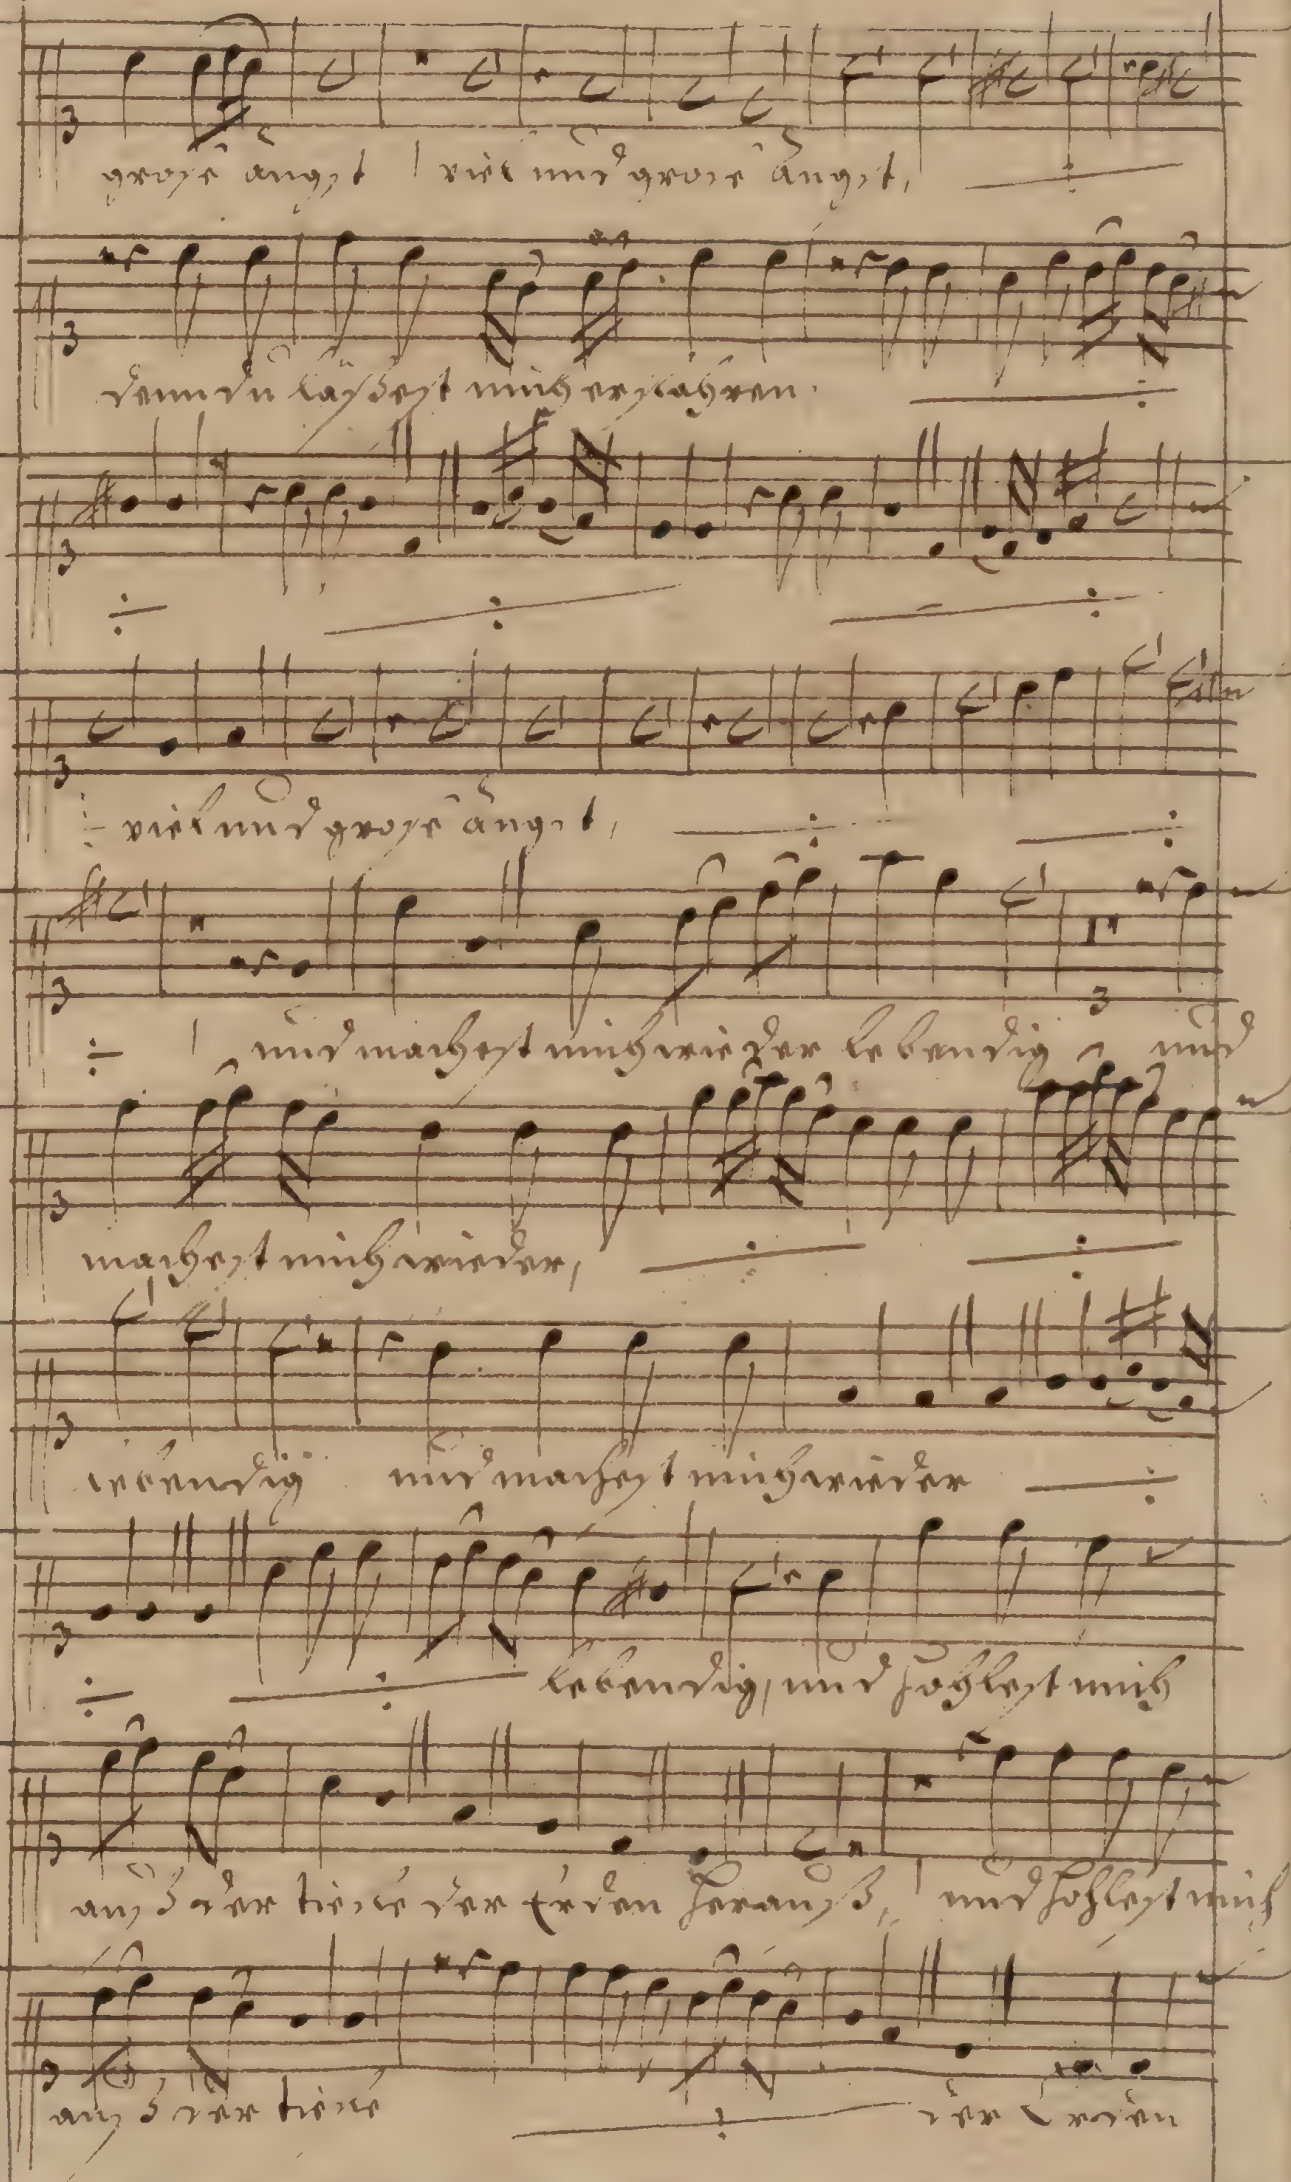 große angst viel und große angst,
denn du läßest mich erfahren.
viel und große angst,
und machest mich wieder lebendig und
machest mich wieder,
lebendig und machest mich wieder
lebendig, und hohlest mich
auß der tieffe der Erden herauß, und hohlest mich
auß der tieffe der Erden